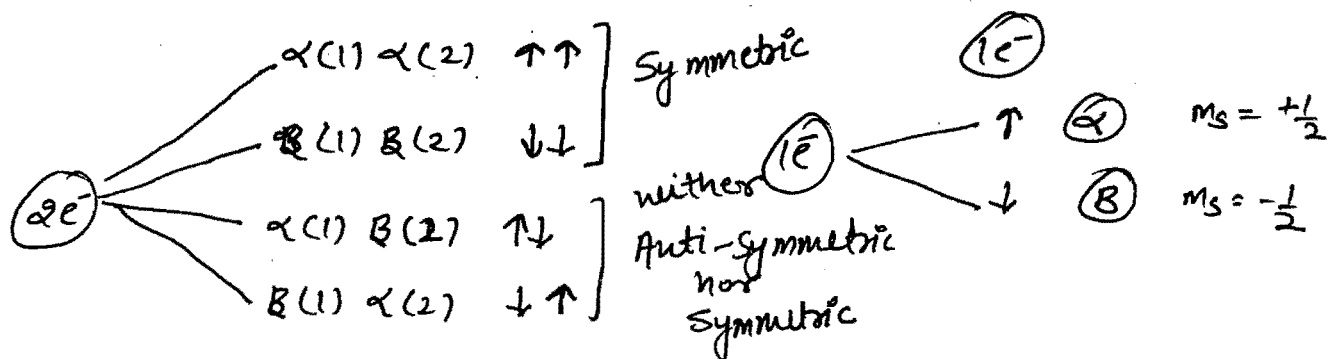 2e⁻
α(1) α(2) ↑↑
β(1) β(2) ↓↓
Symmetric
α(1) β(2) ↑↓
β(1) α(2) ↓↑
neither
Anti-Symmetric
nor
Symmetric
1e⁻
1e⁻
↑ α ms = +1/2
↓ β ms = -1/2